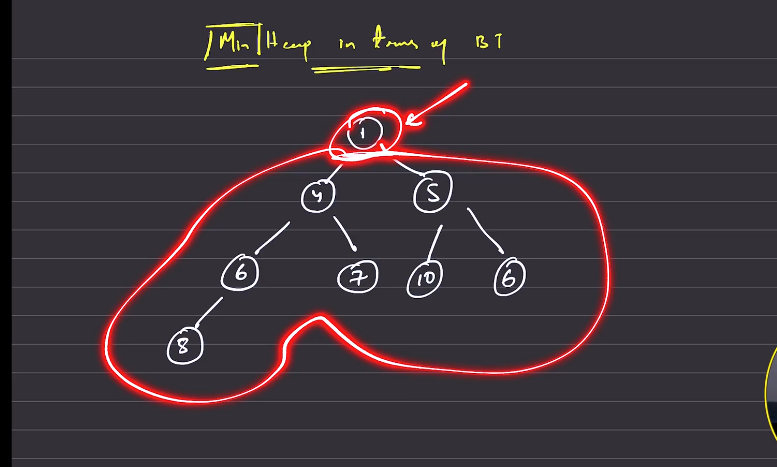 Min Heap in terms of BT
1
4 5
6 7 10 6
8